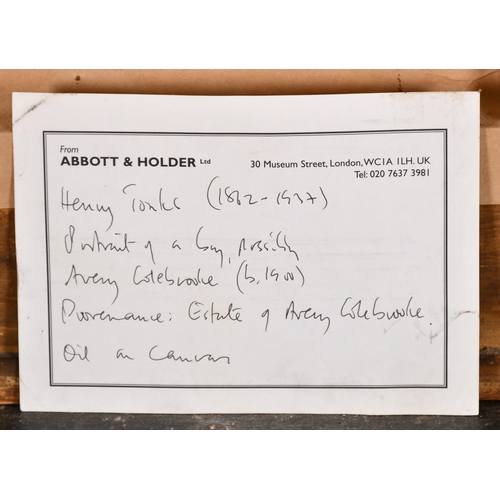 From
ABBOTT & HOLDER Ltd
30 Museum Street, London, WC1A 1LH. UK
Tel: 020 7637 3981
Henry Tonks (1862-1937)
Portrait of a boy, possibly
Avery Colebrooke (b. 1900)
Provenance: Estate of Avery Colebrooke.
Oil on Canvas